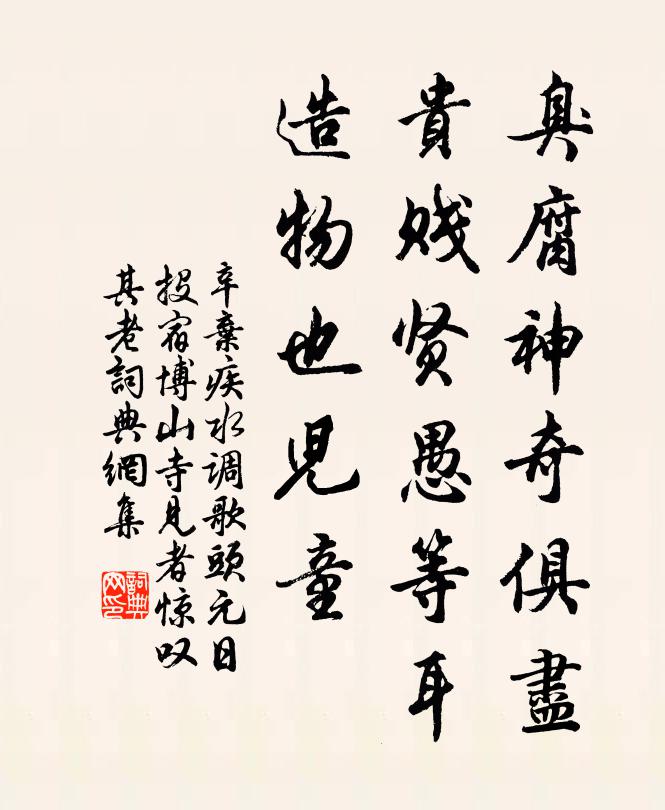 臭腐神奇俱盡
貴贱贤愚等耳
造物也兒童
辛棄疾水调歌頭元日
投宿博山寺見者惊叹
其老詞典網集
詞典网印